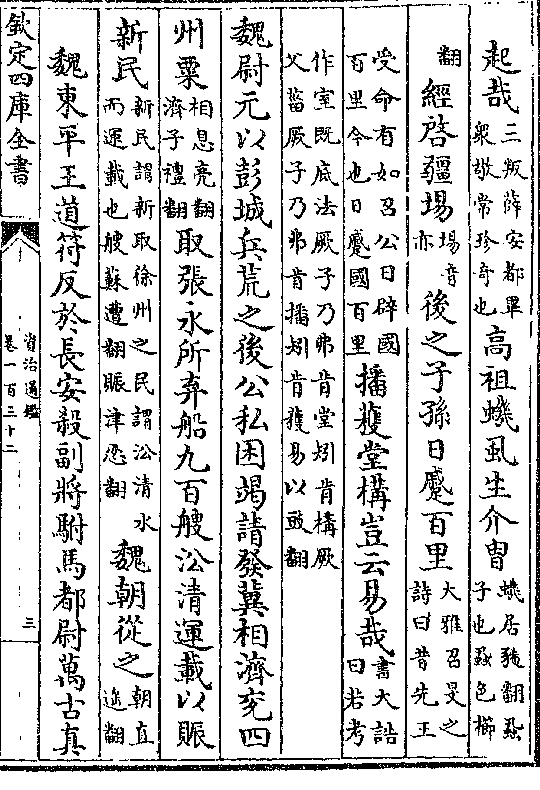 起哉三叛薛安都畢衆敬常珍竒也高祖蟣虱生介胄蟣居豨翻蝨子也蝨色櫛
翻經啓疆埸埸音亦後之子孫日蹙百里大雅召旻之詩曰昔先王
受命有如召公日辟國百里今也日蹙國百里播穫堂構豈云易哉書大誥曰若考
作室既底法厥子乃弗肯堂矧肯構厥父菑厥子乃弗肯播矧肯穫易以豉翻
魏尉元以彭城兵荒之後公私困竭請發冀相濟兖四
州粟相息亮翻濟子禮翻取張永所弃船九百艘㳂清運載以賑
新民新民謂新取徐州之民謂㳂清水而運載也艘蘇遭翻賑津忍翻魏朝從之朝直遥翻
魏東平王道符反於長安殺副將駙馬都尉萬古真
欽定四庫全書
資治通鑑
卷一百三十二
三